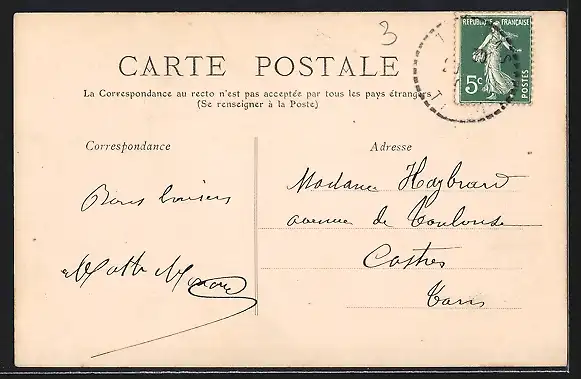 3
CARTE POSTALE
La Correspondance au recto n'est pas acceptée par tous les pays étrangers
(Se renseigner à la Poste)
REPUBLIQUE FRANÇAISE
5c
POSTES
Correspondance
Adresse
Bons baisers
Madame
avenue de Toulouse
Castres
Tarn